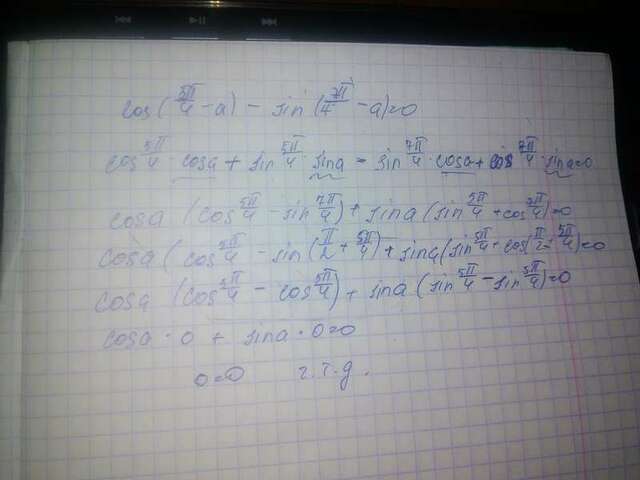 cos(5π/4 - a) - sin(7π/4 - a)=0
cos 5π/4 · cosa + sin 5π/4 · sina - sin 7π/4 · cosa + cos 7π/4 · sina=0
cosa (cos 5π/4 - sin 7π/4) + sina (sin 5π/4 + cos 7π/4)=0
cosa (cos 5π/4 - sin(π/2 + 5π/4)) + sina (sin 5π/4 + cos(π/2 + 5π/4))=0
cosa (cos 5π/4 - cos 5π/4) + sina (sin 5π/4 - sin 5π/4)=0
cosa · 0 + sina · 0=0
0=0 ч.т.д.